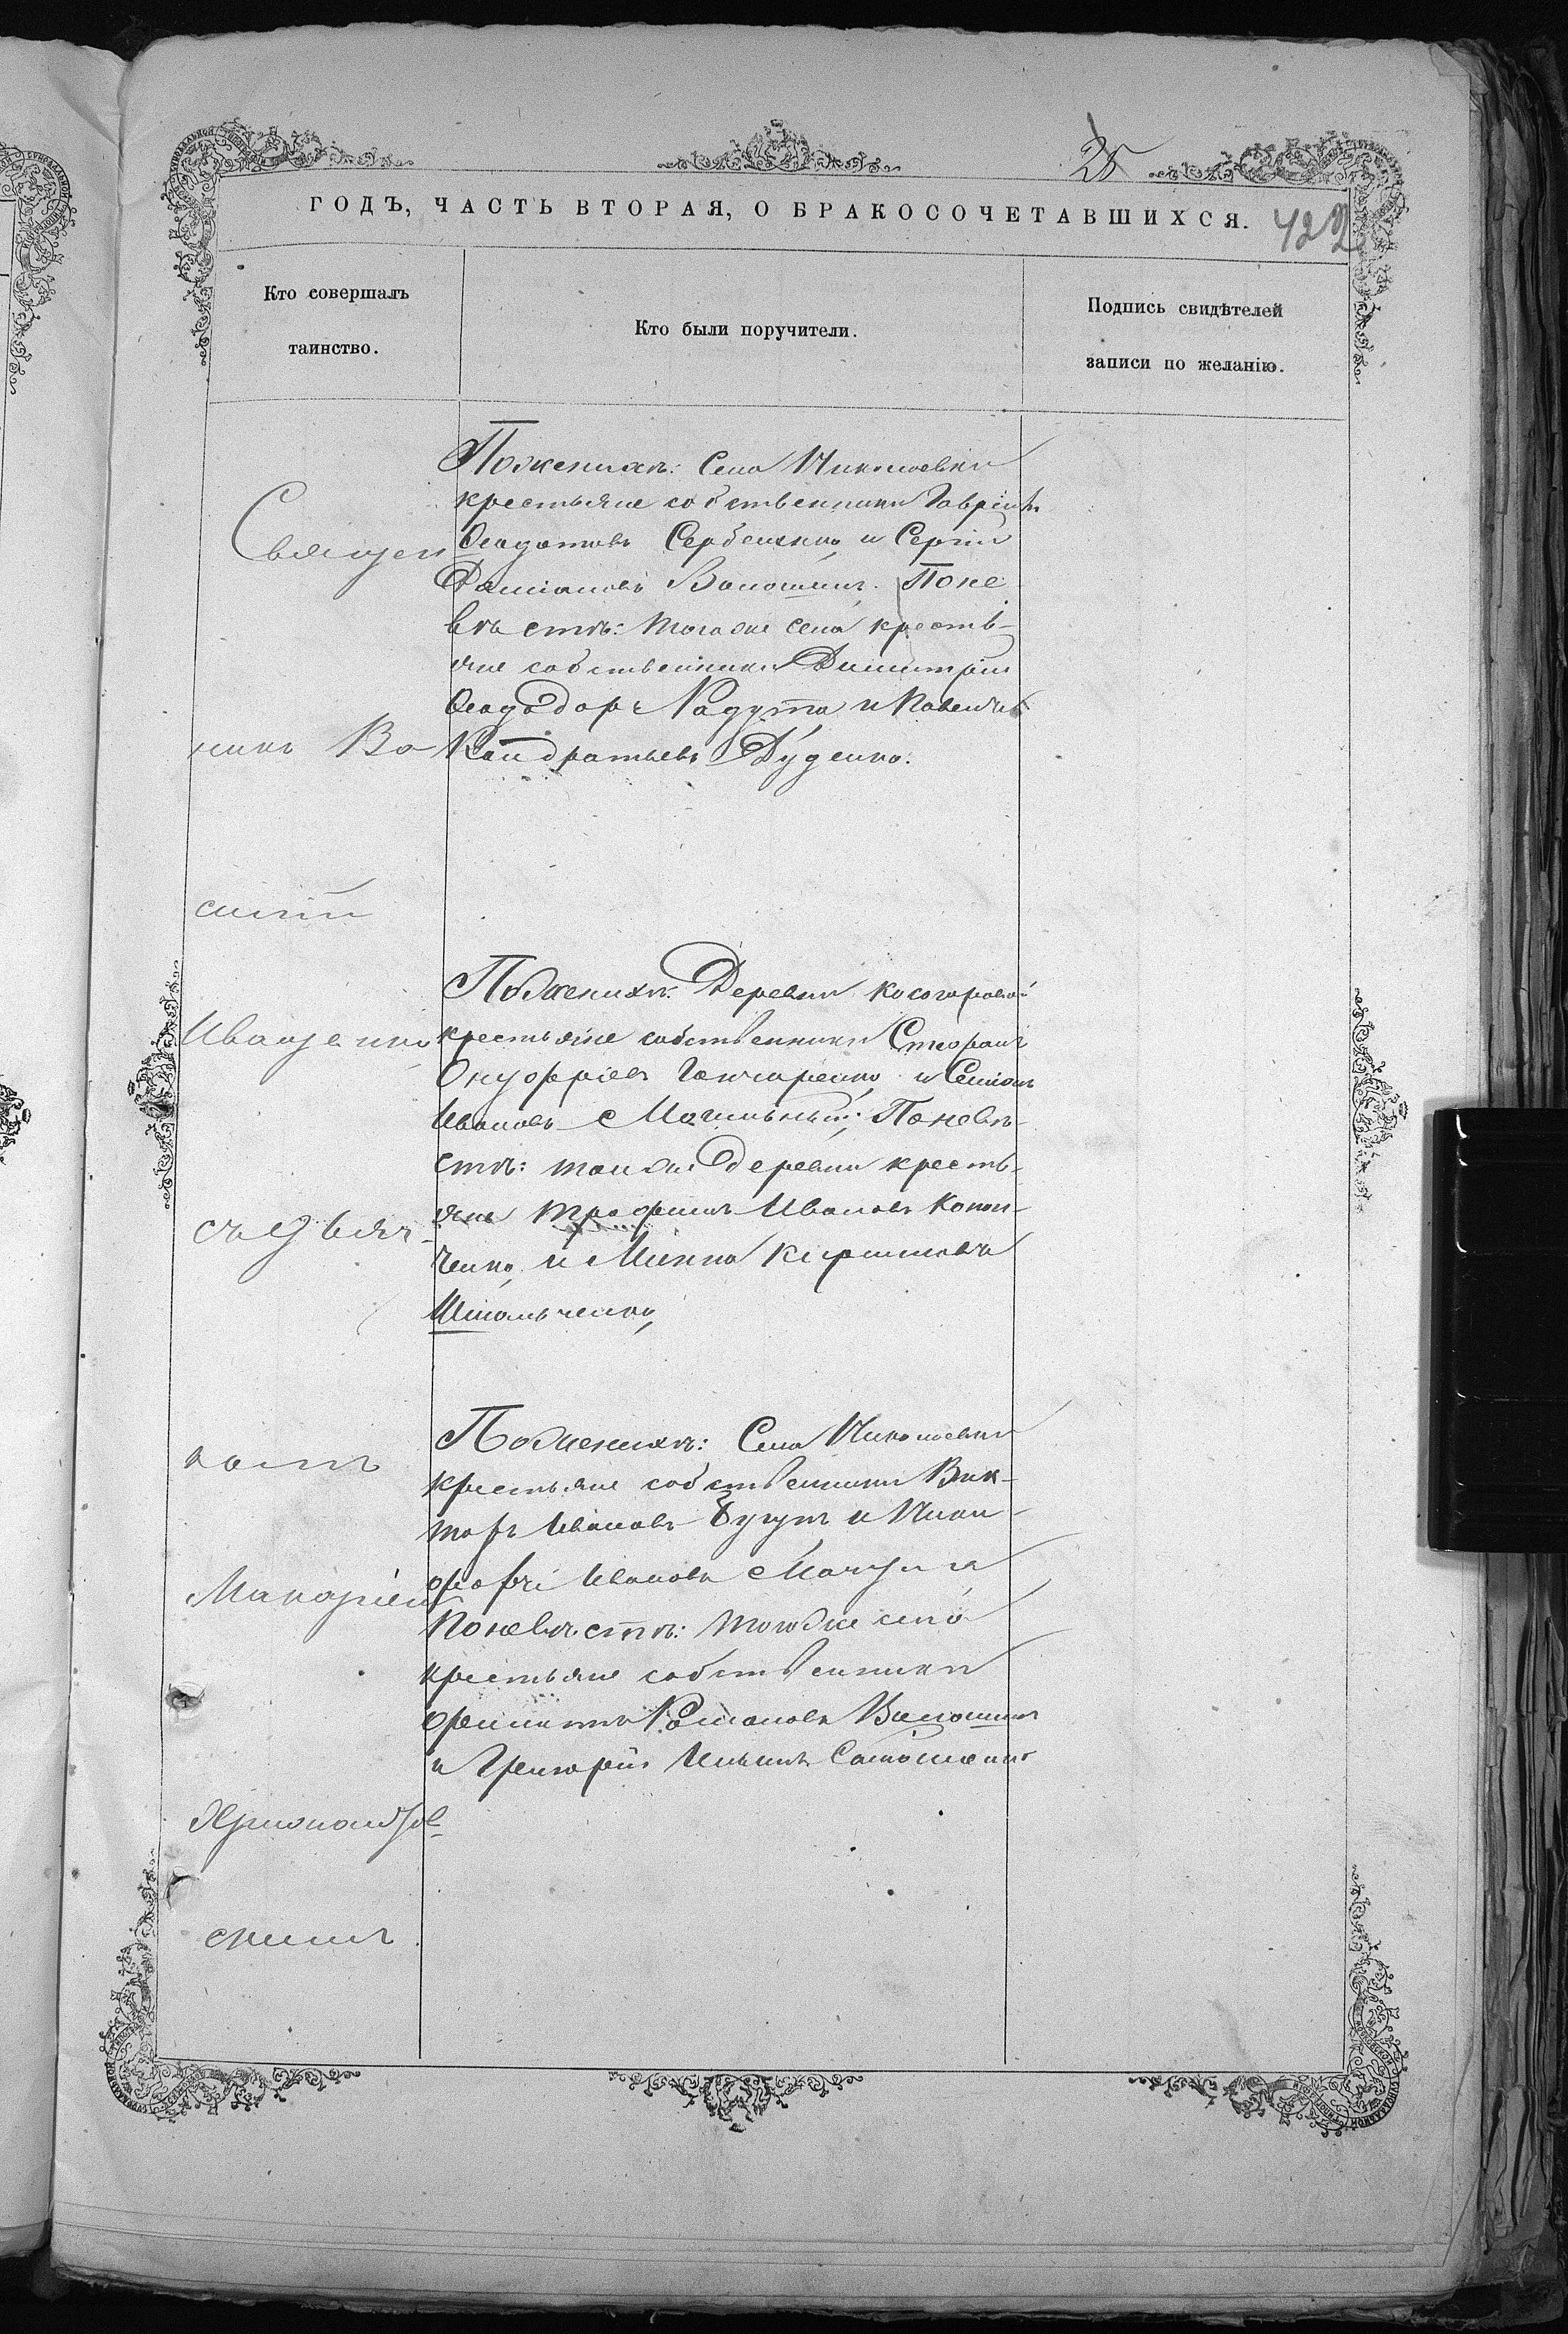 25
ГОДЪ, ЧАСТЬ ВТОРАЯ, О БРАКОСОЧЕТАВШИХСЯ.
422
Кто совершалъ
таинство.
Кто были поручители.
Подпись свидѣтелей
записи по желанію.
Священ
никъ Ва
силій
Иващенко
съ дьяч-
комъ
Макаріемъ
Хрисанов-
скимъ
Поженихѣ: Села Николаевки
крестьяне собственники Гавріилъ
Сербенко и Сергій
Даміановъ Волошинъ. Поне
вѣстѣ: того же села кресть-
яне собственники Димитрій
Радута и Павелъ
Кондратьевъ Дуденко.
Поженихѣ: Деревни Косогоровой
крестьяне собственники Стефанъ
Онуфріевъ Гончаренко и Симонъ
Ивановъ Могильный; Поневѣ-
стѣ: той же деревни кресть-
яне Трофимъ Ивановъ Конон-
ченко и Минна
Школьченко,
Поженихѣ: Села Николаевки
крестьяне собственники Вик-
торъ Ивановъ Бугутъ и Ники-
форъ Ивановъ Мачула
Поневѣстѣ: того же села
крестьяне собственники
Филиппъ Романовъ Волошинъ
и Григорій Ильинъ